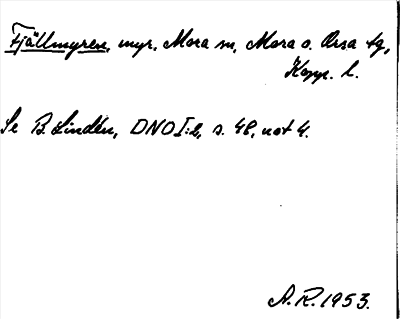 Fjällmyren, myr, Mora sn, Mora o. Orsa tg,
Kopp. l.
Se B. Lindén, DNO I:2, s. 48, not 4.
A.R. 1953.